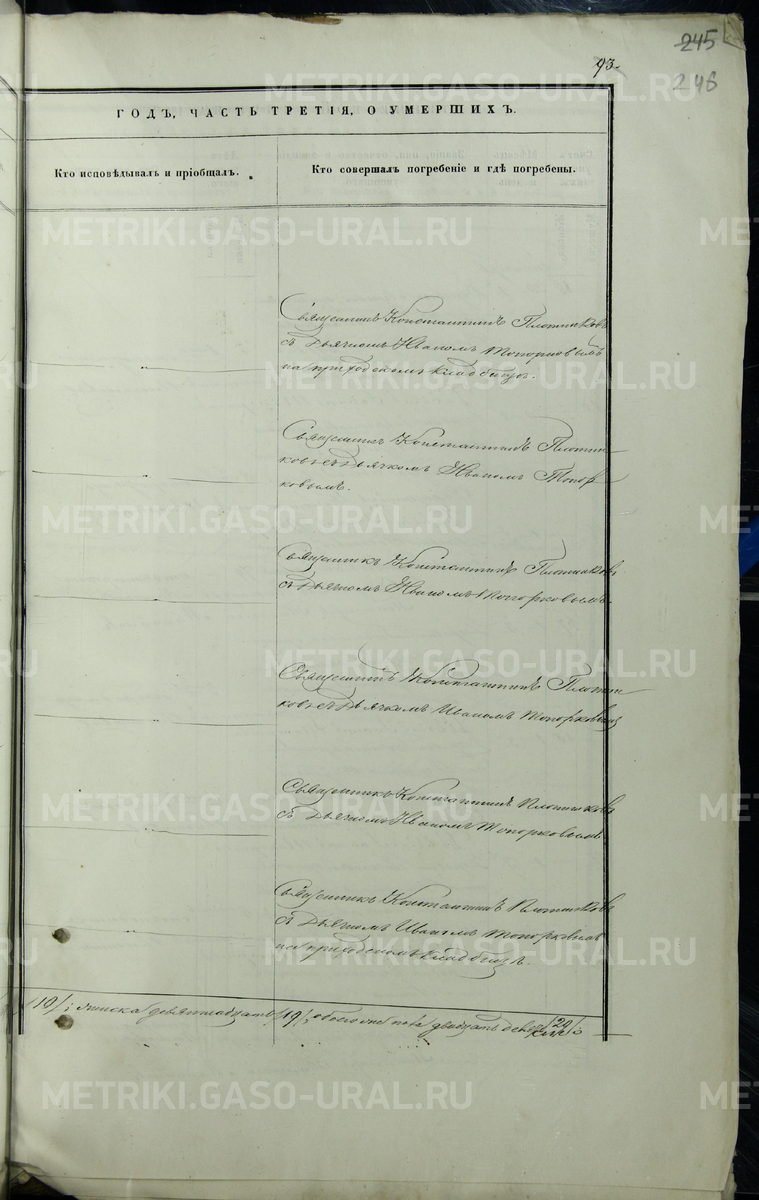 245
246
93.
ГОДЪ, ЧАСТЬ ТРЕТІЯ, О УМЕРШИХЪ.
Кто исповѣдывалъ и пріобщалъ.
Кто совершалъ погребеніе и гдѣ погребены.
Священникъ Константинъ Плотниковъ
съ Дьячкомъ Иваномъ Топорковымъ
на приходскомъ кладбищѣ.
Священникъ Константинъ Плотни-
ковъ съ Дьячкомъ Иваномъ Топор-
ковымъ.
Священникъ Константинъ Плотниковъ
съ Дьячкомъ Иваномъ Топорковымъ
Священникъ Константинъ Плотни-
ковъ съ Дьячкомъ Иваномъ Топорковымъ
Священникъ Константинъ Плотниковъ
съ Дьячкомъ Иваномъ Топорковымъ
Священникъ Константинъ Плотниковъ
съ Дьячкомъ Иваномъ Топорковымъ
на приходскомъ кладбищѣ.
/10/; женска девятнадцать /19/; обоего пола двадцать девять /29/
METRIKI.GASO-URAL.RU